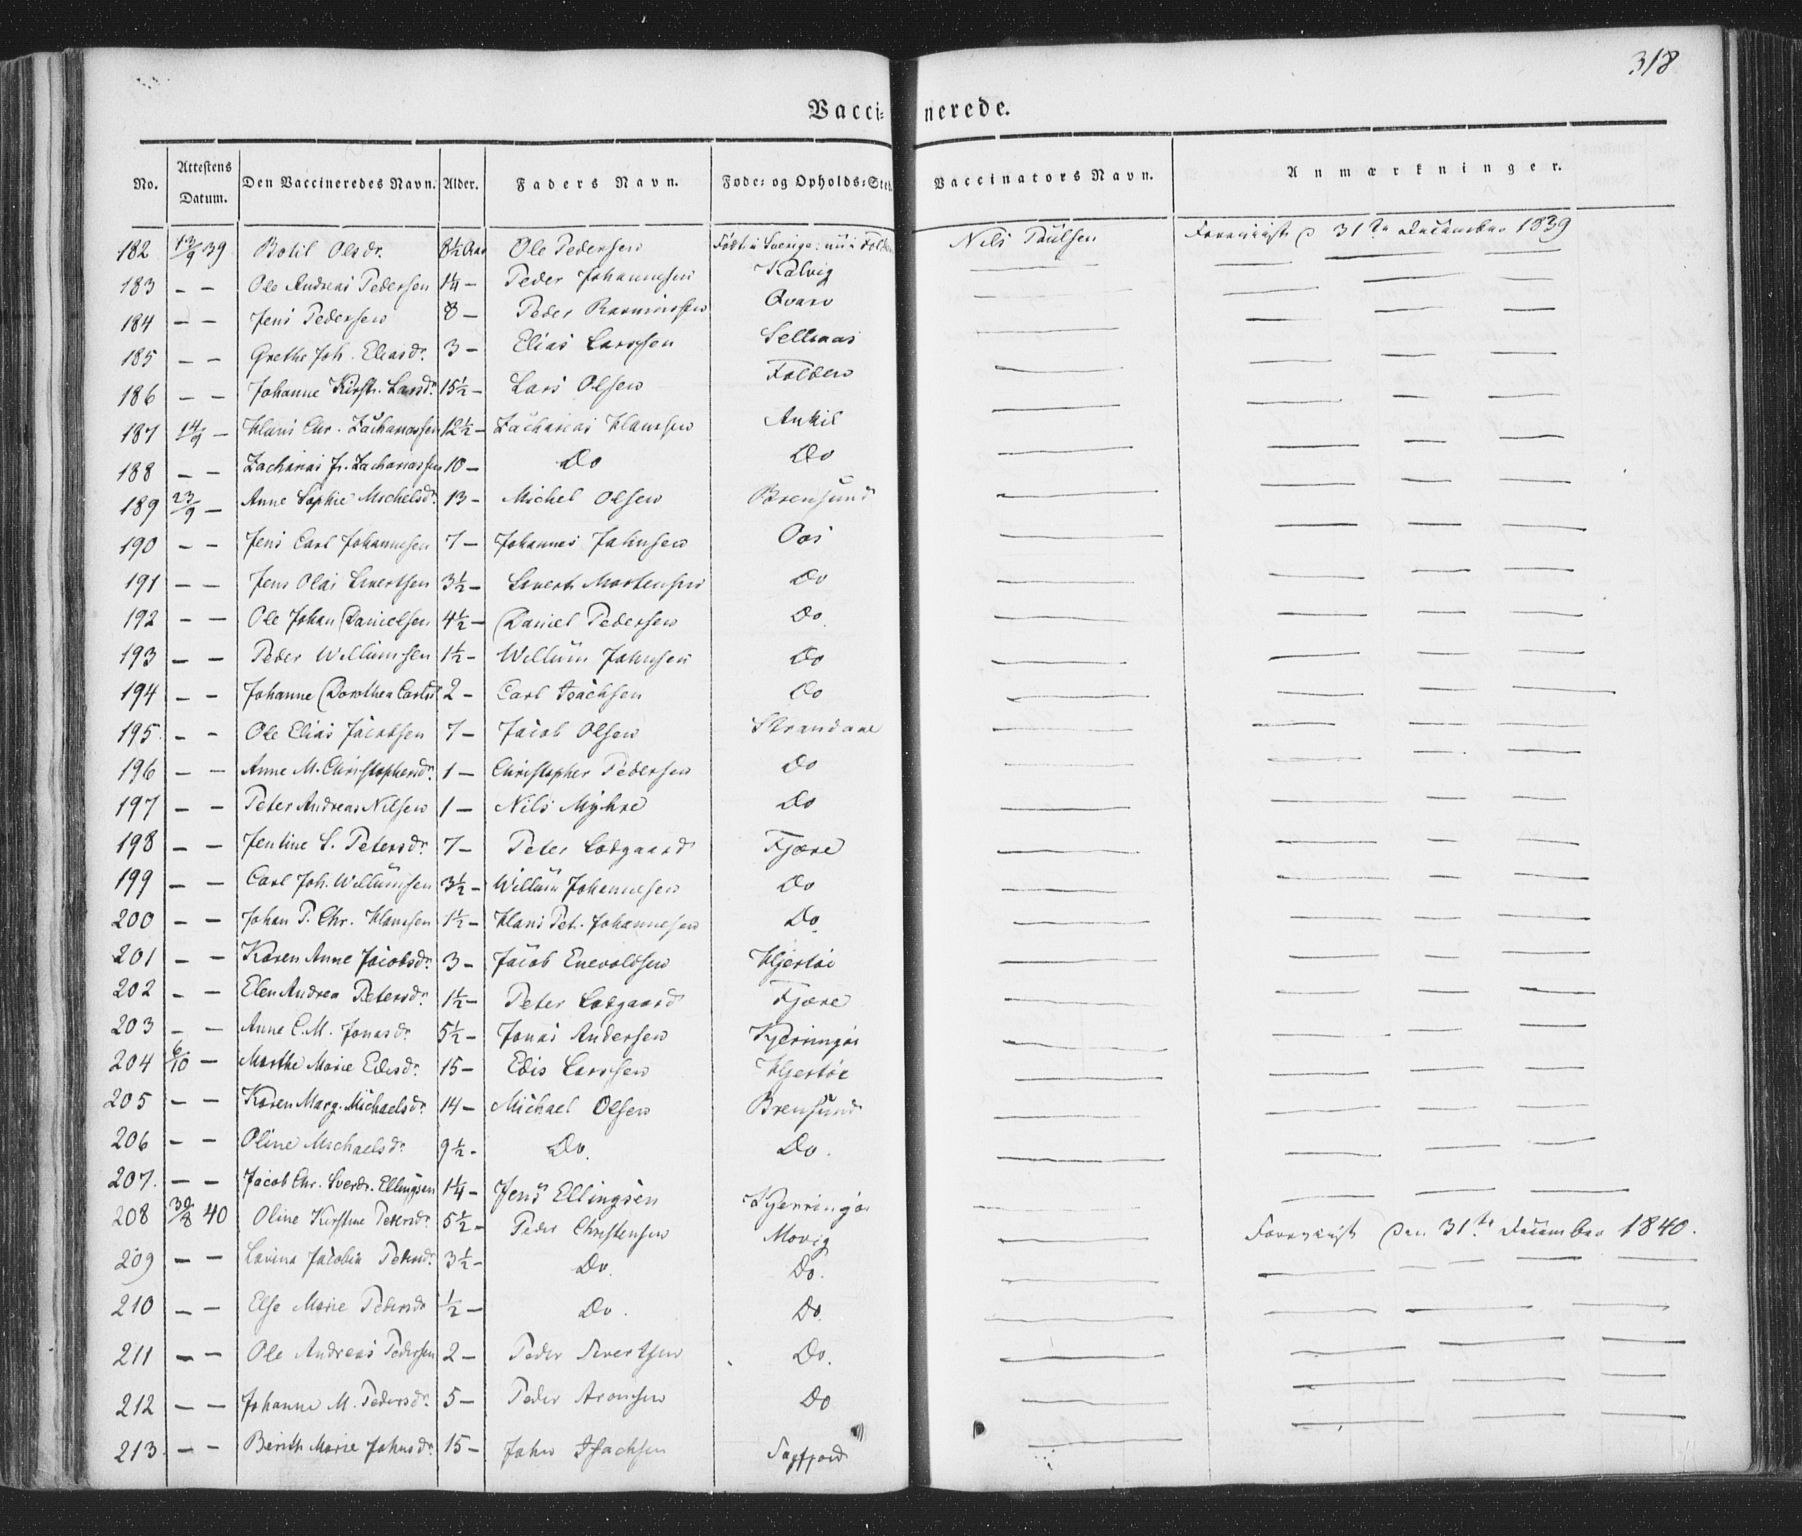 318
Vaccinerede.
No. Attestens Datum. Den Vaccineredes Navn. Alder. Faders Navn. Føde- og Opholds-Sted Vaccinators Navn. Anmærkninger.
182 13/9 39 Botil Olsdr. 8½ Aar Ole Pedersen Født i Sverige: nu i Folden Nils Paulsen 31te December 1839
183 — — Ole Andreas Pedersen 1¼ — Peder Johannesen Kalvig — — — —
184 — — Jens Pedersen 8 — Peder Rasmussen — — — —
185 — — Grethe Joh. Eliasdr. 3 — Elias Larssen Selsaas — — — —
186 — — Johanne Kirst. Larsdr. 15½ — Lars Olsen Folden — — — —
187 14/9 — Hans Chr. Zachariassen 12½ — Zacharias Hanssen — — — —
188 — — Zacharias Jr. Zachariassen 10 — Do Do — — — —
189 23/9 — Anne Sophie Michelsdr. 13 — Michel Olsen Brensund — — — —
190 — — Jens Carl Johannesen 7 — Johannes Johnsen Oos — — — —
191 — — Jens Olai Sivertsen 3½ — Sivert Mortensen Do — — — —
192 — — Ole Johan Danielsen 4½ — Daniel Pedersen Do. — — — —
193 — — Peder Willumsen 1½ — Willum Johnsen Do — — — —
194 — — Johanne Dorothea Carlsd. 2 — Carl Isachsen Do — — — —
195. — — Ole Elias Jacobsen 7 — Jacob Olsen Strandaae — — — —
196 — — Anne M. Christophersdr. 1 — Christopher Pedersen Do — — —
197 — — Peter Andreas Nilsen 1 — Nils Myhre Do — — — —
198 — — Jentine S. Petersdr. 7 — Peter Lodgaard Fjære — — — —
199 — — Carl Joh. Willumsen 3½ — Willum Johannesen Do — — — —
200 — — Johan P. Chr. Hanssen 1½ — Hans Pet. Johannesen Do. — — — —
201 — — Karen Anne Jacobsdr. 3 — Jacob Enevoldsen Hjertøe — — — —
202 — — Elen Andrea Petersdr. 1½ — Peter Lodgaard Fjære — — — —
203 — — Anne C. M. Jonasdr. 5½ — Jonas Andersen Kjerringøe — — — —
204 6/10 — Marthe Marie Edisdr. 15 — Edis Larssen Hjertøe — — — —
205 — — Karen Marg. Michaelsdr. 14 — Michael Olsen Brensund — — — —
206 — — Oline Michaelsdr. 9½ — Do. Do. — — — —
207. — — Jacob Chr. Sverdr. Ellingsen 1¼ — Jens Ellingsen Kjerringøe — — — —
208 30/8 40 Oline Kirstine Petersdr. 5½ — Peder Christensen Movig — den 31te December 1840.
209 — — Lavina Jacobia Petersdr. 3½ — Do. Do. — — — — —
210 — — Else Marie Pedersdr ½ — Do. Do. — — — —
211 — — Ole Andreas Pedersen 2 — Peder Sivertsen Do. — — — —
212 — — Johanne M. Pedersdr. 5 — Peder Aronsen Do — — — —
213. — — Berith Marie Johnsdr. 15 — John Isachsen Sagfjord — — — —